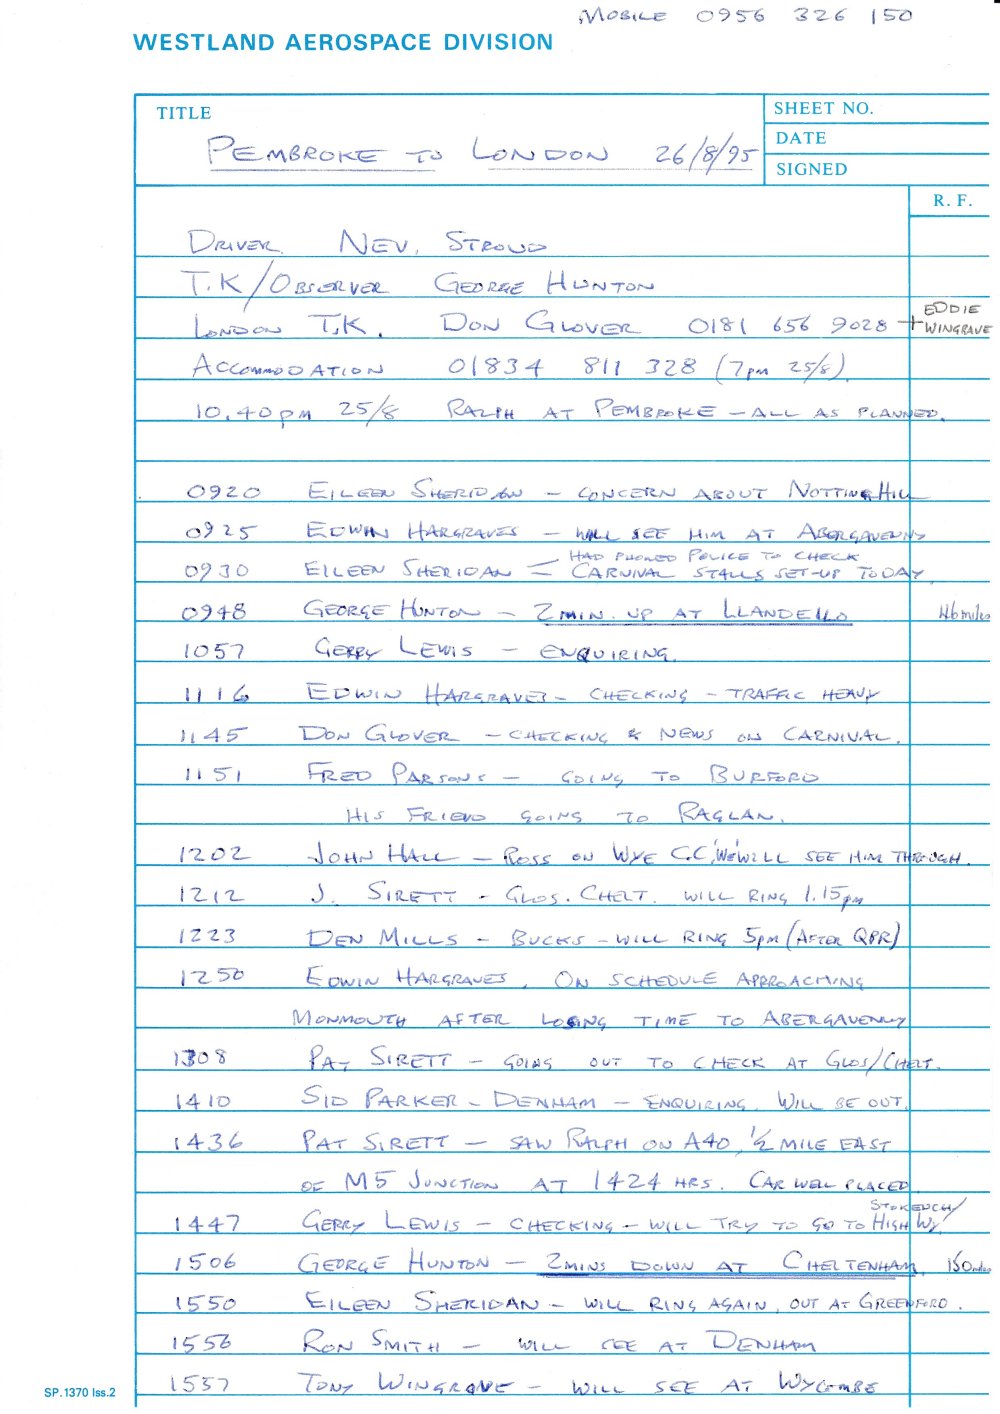 MOBILE 0956 326 150
WESTLAND AEROSPACE DIVISION
TITLE
SHEET NO.
PEMBROKE TO LONDON 26/8/95
DATE
SIGNED
R. F.
DRIVER. NEV. STROUD
T.K/OBSERVER GEORGE HUNTON
LONDON T.K. DON GLOVER 0181 656 9028 + EDDIE WINGRAVE
ACCOMMODATION 01834 811 328 (7pm 25/8)
10.40pm 25/8 RALPH AT PEMBROKE - ALL AS PLANNED.
0920 EILEEN SHERIDAN - CONCERN ABOUT NOTTING HILL
0925 EDWIN HARGRAVES - WILL SEE HIM AT ABERGAVENNY
HAD PHONED POLICE TO CHECK
0930 EILEEN SHERIDAN - CARNIVAL STALLS SET-UP TODAY
0948 GEORGE HUNTON - 2 MIN. UP AT LLANDEILO 46 miles
1057 GERRY LEWIS - ENQUIRING.
1116 EDWIN HARGRAVES - CHECKING - TRAFFIC HEAVY
1145 DON GLOVER - CHECKING & NEWS ON CARNIVAL.
1151 FRED PARSONS - GOING TO BURFORD
HIS FRIEND GOING TO RAGLAN.
1202 JOHN HALL - ROSS ON WYE C.C. 'WE WILL SEE HIM THROUGH.
1212 J. SIRETT - GLOS. CHELT. WILL RING 1.15pm
1223 DEN MILLS - BUCKS - WILL RING 5pm (AFTER QPR)
1250 EDWIN HARGRAVES, ON SCHEDULE APPROACHING
MONMOUTH AFTER LOSING TIME TO ABERGAVENNY
1308 PAT SIRETT - GOING OUT TO CHECK AT GLOS/CHELT.
1410 SID PARKER - DENHAM - ENQUIRING. WILL BE OUT.
1436 PAT SIRETT - SAW RALPH ON A40, 1/2 MILE EAST
OF M5 JUNCTION AT 1424 HRS. CAR WELL PLACED
STOKENCH/
1447 GERRY LEWIS - CHECKING - WILL TRY TO GO TO HIGH WY
1506 GEORGE HUNTON - 2 MINS DOWN AT CHELTENHAM. 150 miles
1550 EILEEN SHERIDAN - WILL RING AGAIN, OUT AT GREENFORD.
1556 RON SMITH - WILL SEE AT DENHAM
1557 TONY WINGRAVE - WILL SEE AT WYCOMBE
SP.1370 Iss.2